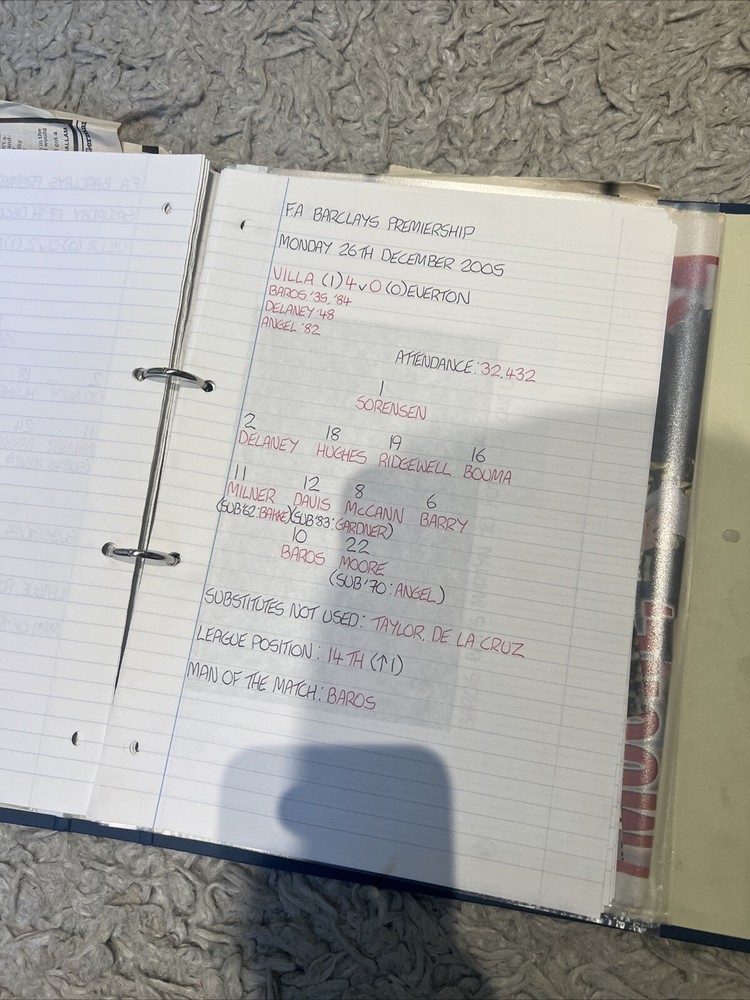 F.A BARCLAYS PREMIERSHIP
MONDAY 26TH DECEMBER 2005
VILLA (1) 4 v 0 (0) EVERTON
BAROS '35, '84
DELANEY '48
ANGEL '82
ATTENDANCE: 32,432
1
SORENSEN
2 18 19 16
DELANEY HUGHES RIDGEWELL BOUMA
11 12 8 6
MILNER DAVIS McCANN BARRY
(SUB '62: BAKKE) (SUB '83: GARDNER)
10 22
BAROS MOORE
(SUB '70: ANGEL)
SUBSTITUTES NOT USED: TAYLOR, DE LA CRUZ
LEAGUE POSITION: 14TH (↑1)
MAN OF THE MATCH: BAROS